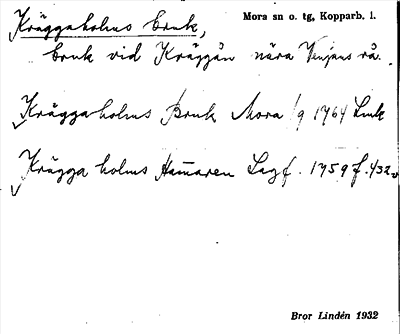 Kräggaholms bruk, Mora sn o. tg, Kopparb. l.
bruk vid Kräggån nära Venjans rå.
Kräggaholms Bruk Mora /9 1764 Link
Krägga holms Ham̄aren Lagf. 1759 f. 432v
Bror Lindén 1932